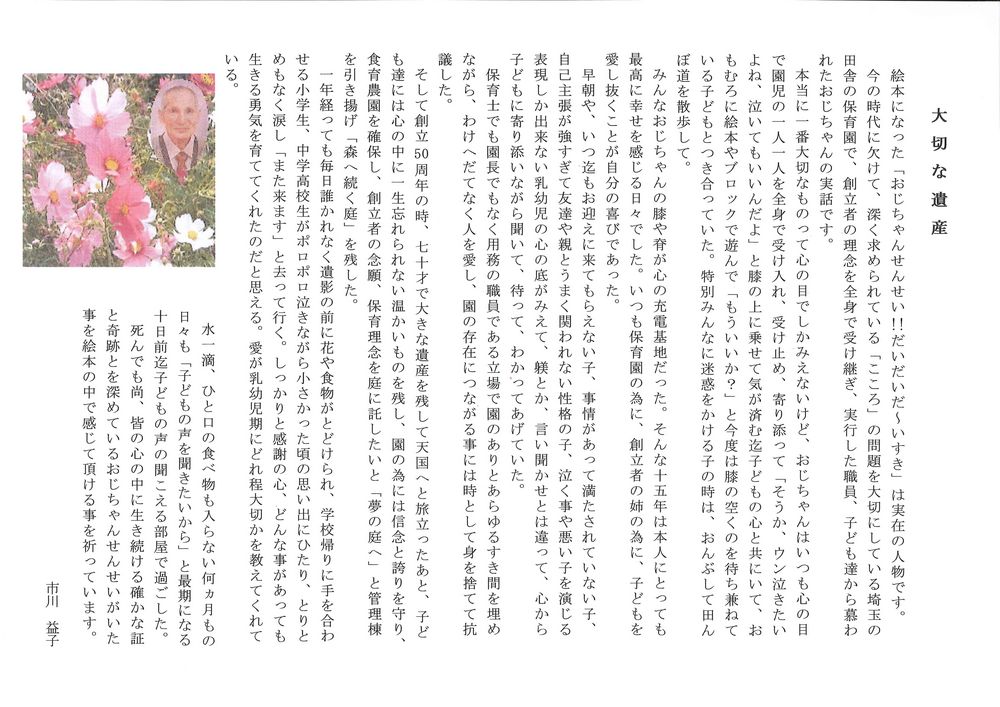 大切な遺産
絵本になった「おじちゃんせんせい!!だいだいだ〜いすき」は実在の人物です。
今の時代に欠けて、深く求められている「こころ」の問題を大切にしている埼玉の
田舎の保育園で、創立者の理念を全身で受け継ぎ、実行した職員、子ども達から慕わ
れたおじちゃんの実話です。
本当に一番大切なものって心の目でしかみえないけど、おじちゃんはいつも心の目
で園児の一人一人を全身で受け入れ、受け止め、寄り添って「そうか、ウン泣きたい
よね、泣いてもいいんだよ」と膝の上に乗せて気が済む迄子どもの心と共にいて、お
もむろに絵本やブロックで遊んで「もういいか？」と今度は膝の空くのを待ち兼ねて
いる子どもとつき合っていた。特別みんなに迷惑をかける子の時は、おんぶして田ん
ぼ道を散歩して。
みんなおじちゃんの膝や脊が心の充電基地だった。そんな十五年は本人にとっても
最高に幸せを感じる日々でした。いつも保育園の為に、創立者の姉の為に、子どもを
愛し抜くことが自分の喜びであった。
早朝や、いつ迄もお迎えに来てもらえない子、事情があって満たされていない子、
自己主張が強すぎて友達や親とうまく関われない性格の子、泣く事や悪い子を演じる
表現しか出来ない乳幼児の心の底がみえて、躾とか、言い聞かせとは違って、心から
子どもに寄り添いながら聞いて、待って、わかってあげていた。
保育士でも園長でもなく用務の職員である立場で園のありとあらゆるすき間を埋め
ながら、わけへだてなく人を愛し、園の存在につながる事には時として身を捨てて抗
議した。
そして創立50周年の時、七十才で大きな遺産を残して天国へと旅立ったあと、子ど
も達には心の中に一生忘れられない温かいものを残し、園の為には信念と誇りを守り、
食育農園を確保し、創立者の念願、保育理念を庭に託したいと「夢の庭へ」と管理棟
を引き揚げ「森へ続く庭」を残した。
一年経っても毎日誰かれなく遺影の前に花や食物がとどけられ、学校帰りに手を合わ
せる小学生、中学高校生がポロポロ泣きながら小さかった頃の思い出にひたり、とりと
めもなく涙し「また来ます」と去って行く。しっかりと感謝の心、どんな事があっても
生きる勇気を育ててくれたのだと思える。愛が乳幼児期にどれ程大切かを教えてくれて
いる。
水一滴、ひと口の食べ物も入らない何ヵ月もの
日々も「子どもの声を聞きたいから」と最期になる
十日前迄子どもの声の聞こえる部屋で過ごした。
死んでも尚、皆の心の中に生き続ける確かな証
と奇跡とを深めているおじちゃんせんせいがいた
事を絵本の中で感じて頂ける事を祈っています。
市川　益子